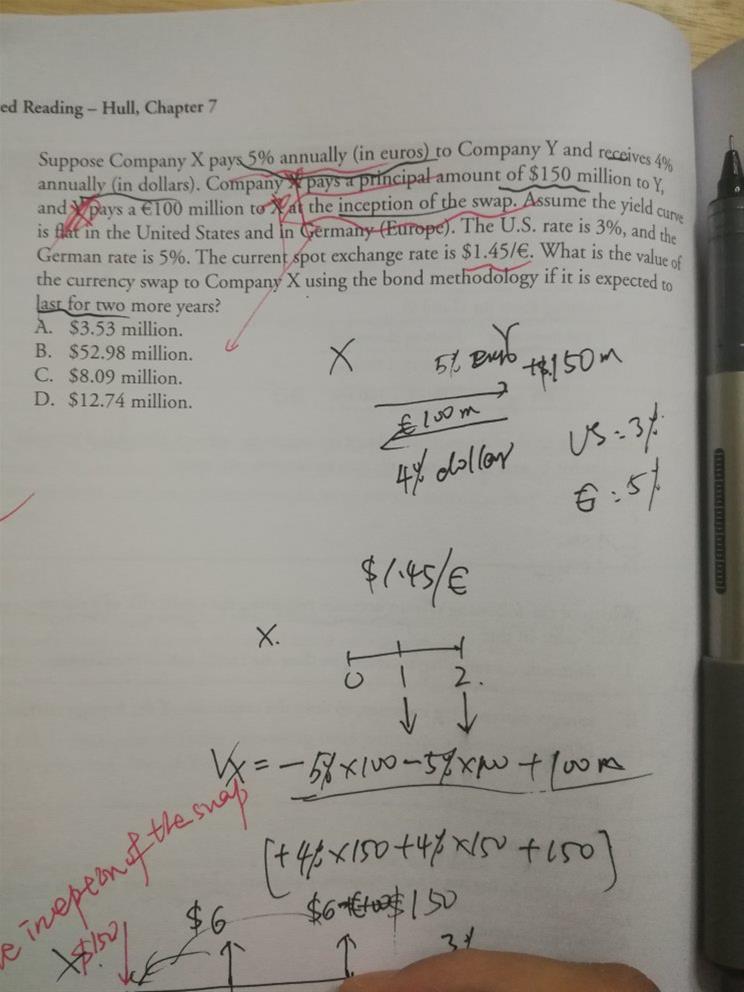 ed Reading – Hull, Chapter 7
Suppose Company X pays 5% annually (in euros) to Company Y and receives 4%
annually (in dollars). Company X pays a principal amount of $150 million to Y,
and Y pays a €100 million to X at the inception of the swap. Assume the yield curve
is flat in the United States and in Germany (Europe). The U.S. rate is 3%, and the
German rate is 5%. The current spot exchange rate is $1.45/€. What is the value of
the currency swap to Company X using the bond methodology if it is expected to
last for two more years?
A. $3.53 million.
B. $52.98 million.
C. $8.09 million.
D. $12.74 million.
X Y
5% euro +$150m
€100m
4% dollar
US = 3%
€ : 5%
$1.45/€
X.
0 1 2.
Vx = -5%×100-5%×100+100m
[+4%×150+4%×150+150]
inception of the swap
$6 $6 $150
X $150
3%